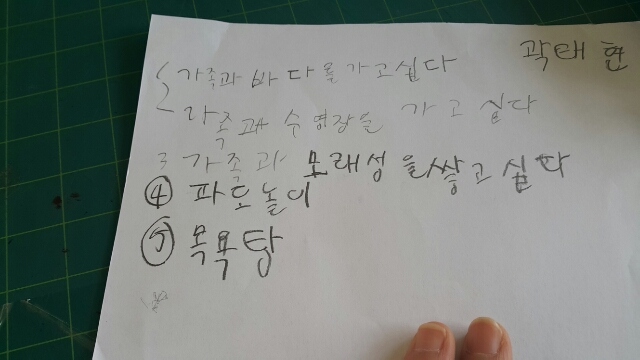 곽태현
가족과 바다를 가고싶다
가족과 수영장을 가고 싶다
3 가족과 모래성을쌓고싶다
④ 파도놀이
⑤ 목욕탕